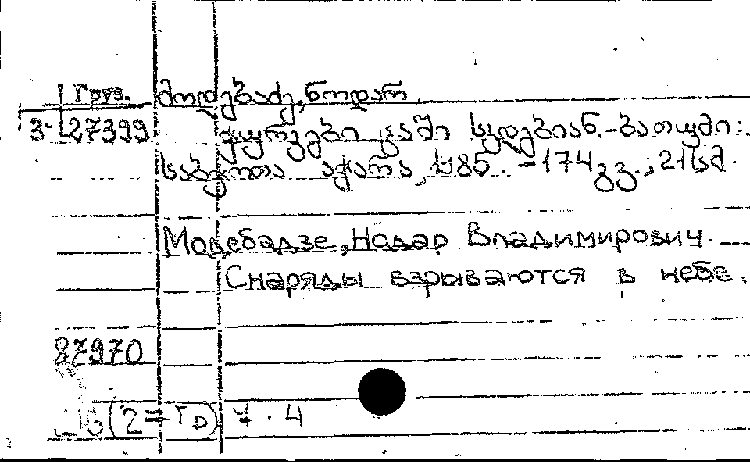 Груз. მოდებაძე, ნოდარ
3-27399 ჭურვები ცაში სკდებიან.-ბათუმი:
საბჭოთა აჭარა, 1985. -174გვ.; 21სმ.
Модебадзе, Нодар Владимирович.
Снаряды взрываются в небе.
87970
(2=Гр) 7.4